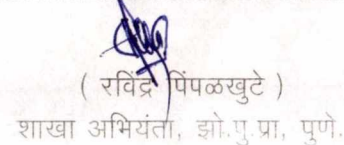 ( रविंद्र पिंपळखुटे )
शाखा अभियंता, झो.पु.प्रा, पुणे.